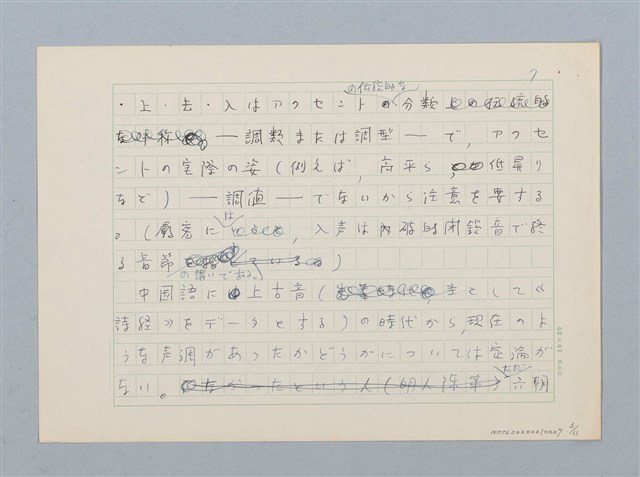 7
の伝統的な
・上・去・入はアクセントの分類上の伝統的
な呼称 ― 調類または調型 ― で、アクセ
ントの実際の姿(例えば、高平ら、低昇り
など) ― 調値 ― でないから注意を要する
は
。(厳密に 、入声は内破的閉鎖音で終
る音節 )
の謂いである。
中国語に上古音( 主として《
詩経》をデータとする)の時代から、現在のよ
うな声調があったかどうかについては定論が
ただ
ない。 なかったという人(明人陳第) 六朝